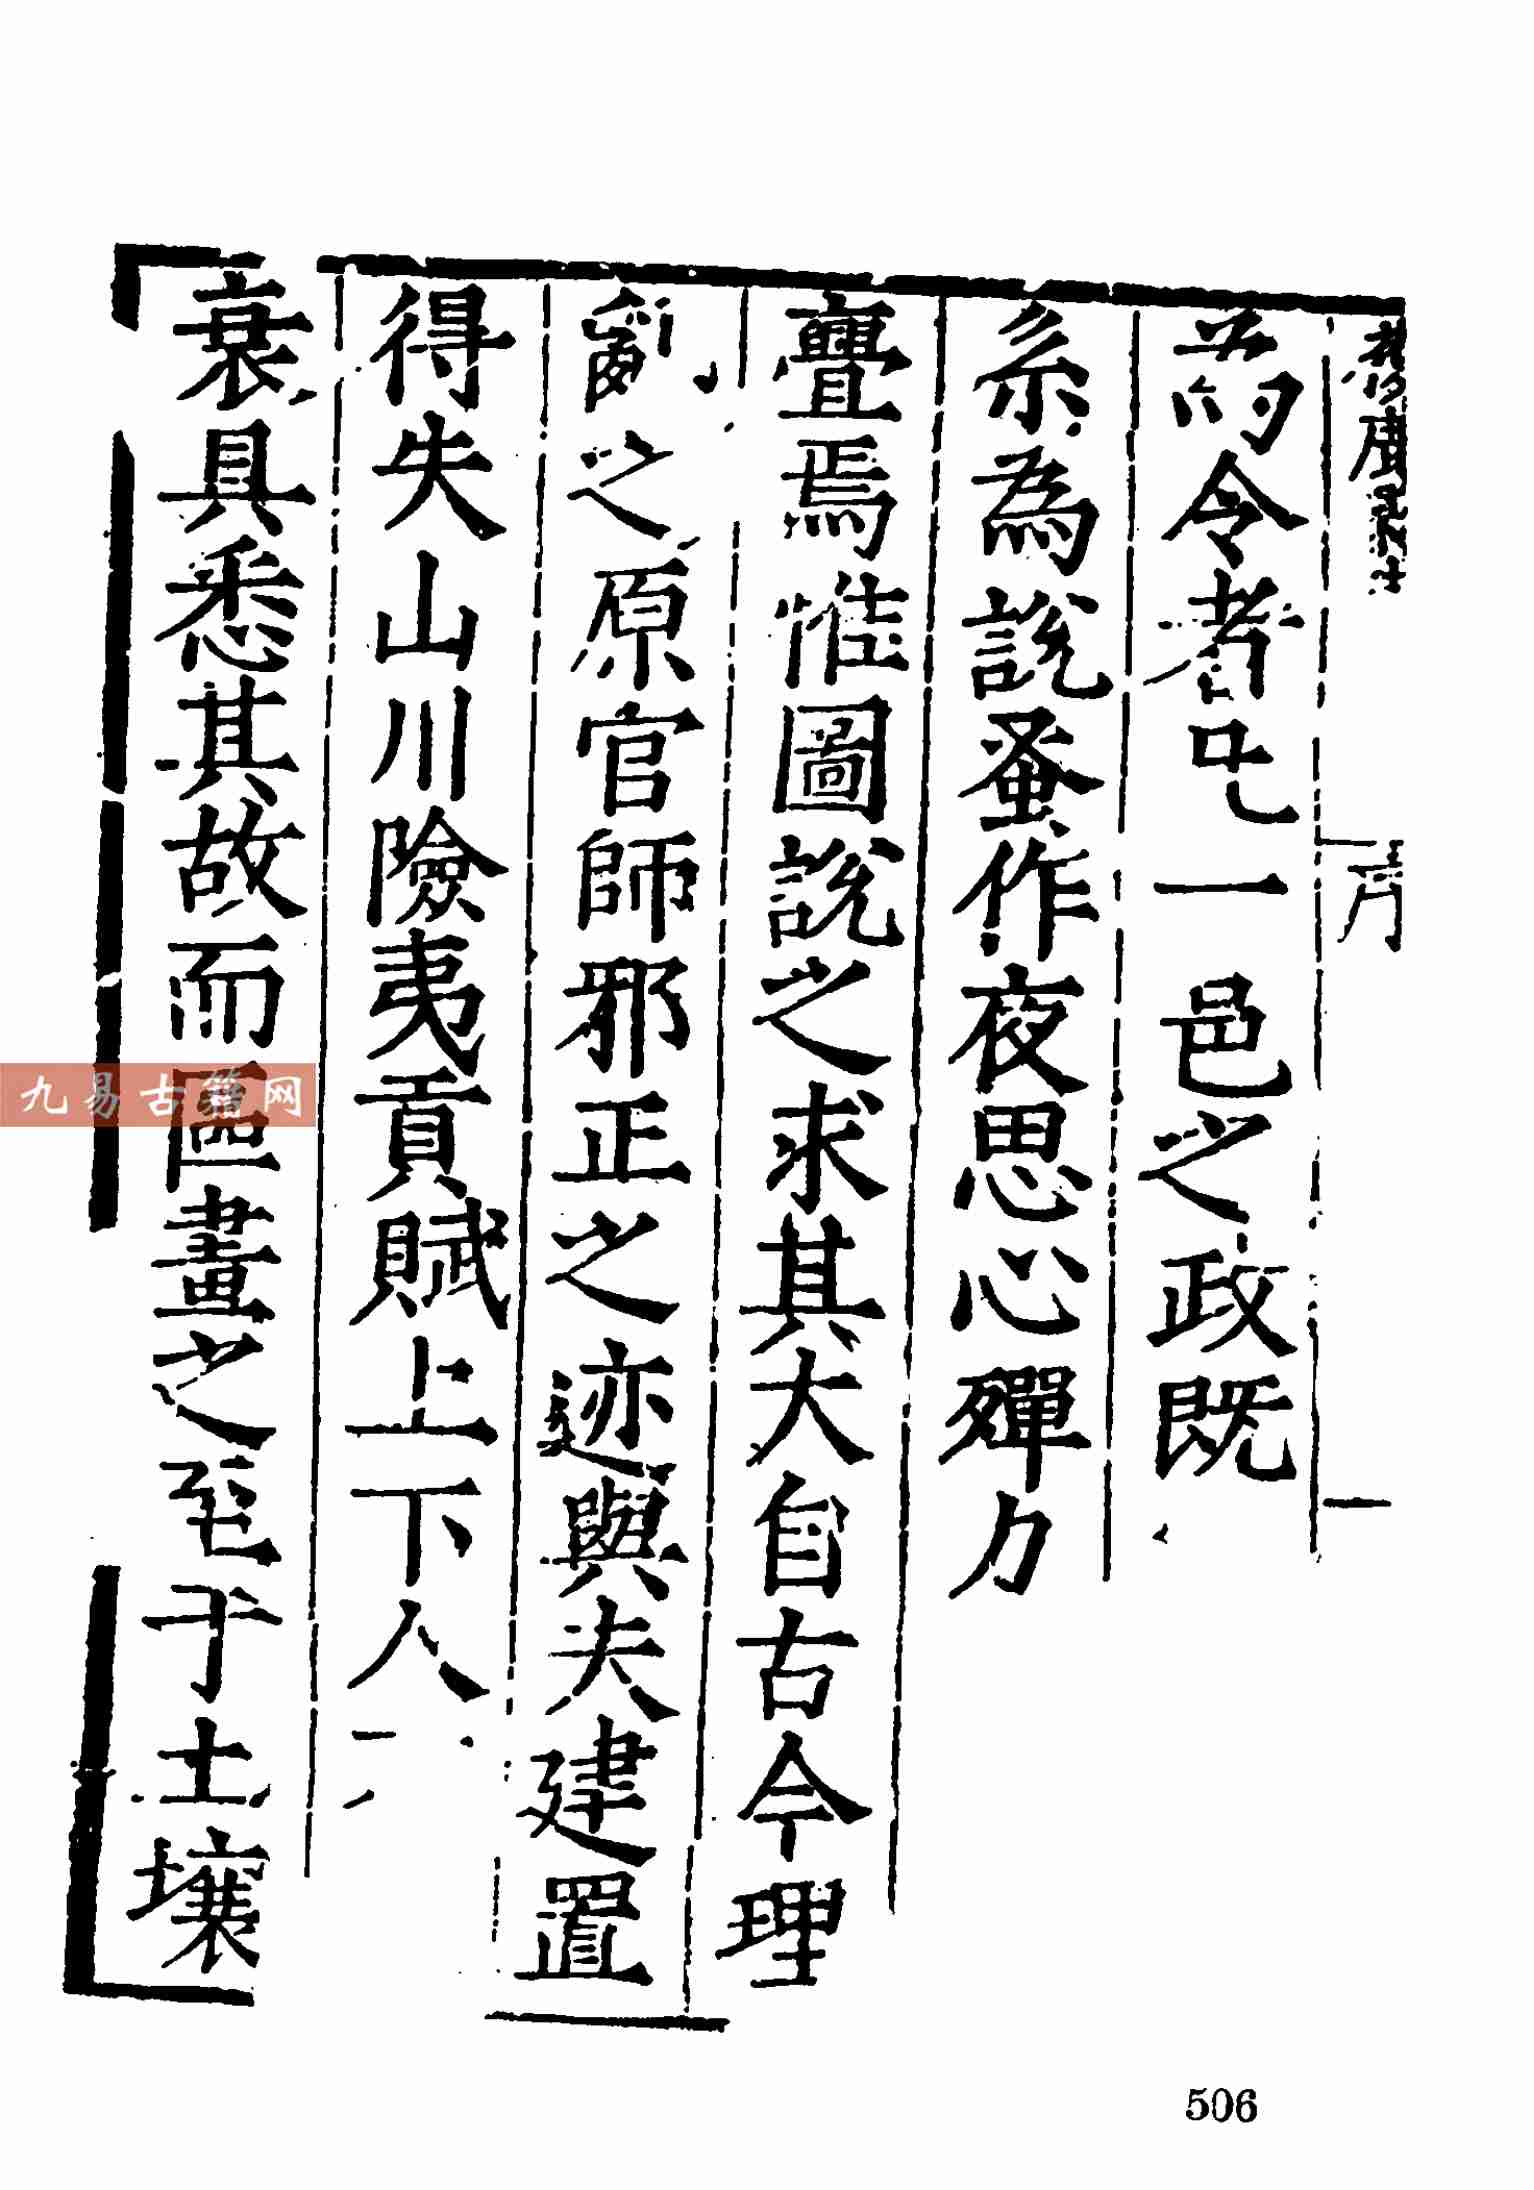 序
一
令者也一邑之政既
系為說蚤作夜思心殫力
亹焉惟圖說之求其大自古今理
亂之原官師邪正之迹與夫建置
得失山川險夷貢賦上下人
衰具悉其故而區畫之至于土壤
九易古籍网
506